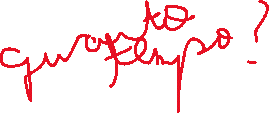 quanto
tempo?